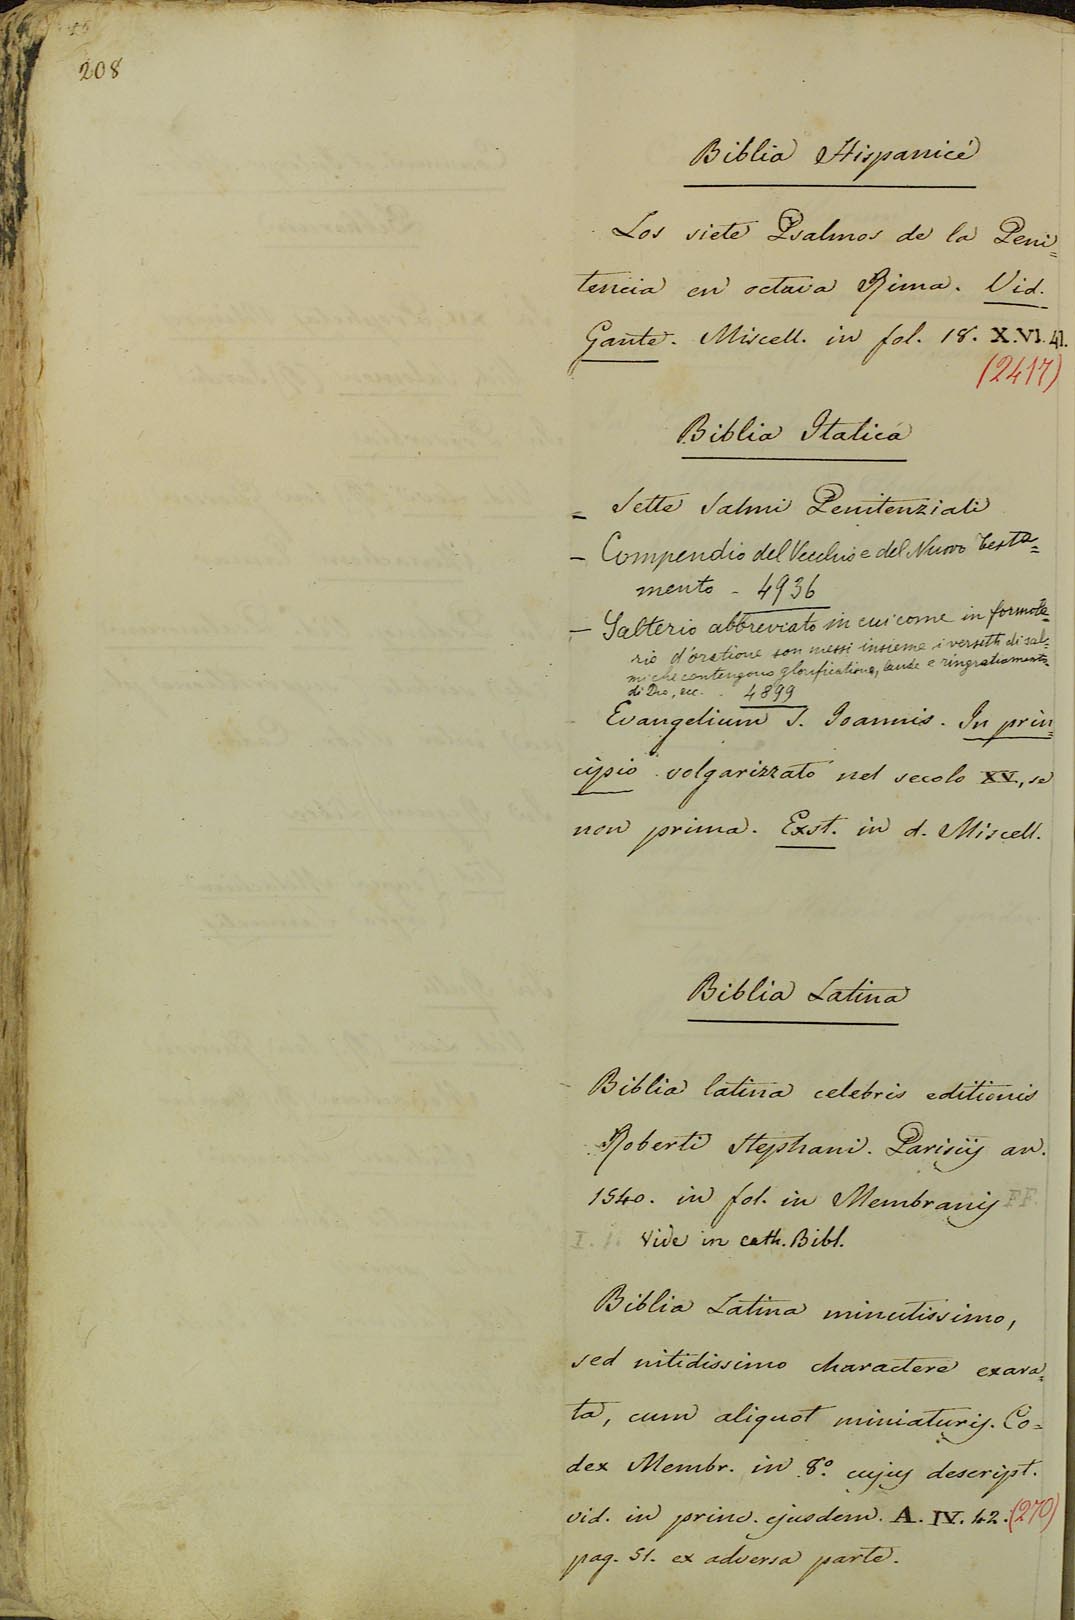 208
Biblia Hispanicé
Los siete Psalmos de la Peni=
tencia en octava Rima. Vid.
Gante. Miscell. in fol. 18. X.VI.41.
(2417)
Biblia Italica
= Sette Salmi Penitenziali
– Compendio del Vecchio e del Nuovo Testa=
mento – 4936
– Salterio abbreviato in cui come in formola=
rio d'oratione son messi insieme i versetti di sal=
mi che contengono glorificatione, laude e ringratiamento
di Dio, ecc. . 4899
Evangelium S. Joannis. In prin=
cipio volgarizzato nel secolo XV, se
non prima. Exst. in d. Miscell.
Biblia Latina
– Biblia latina celebris editionis
Roberti Stephani. Parisijs an.
1540. in fol. in Membranis FF.
I. 1. Vide in cath. Bibl.
Biblia Latina minutissimo,
sed nitidissimo charactere exara=
ta, cum aliquot miniaturis. Co=
dex Membr. in 8.º cujus descript.
vid. in princ. ejusdem. A. IV. 42. (270)
pag. 51. ex adversa parte.